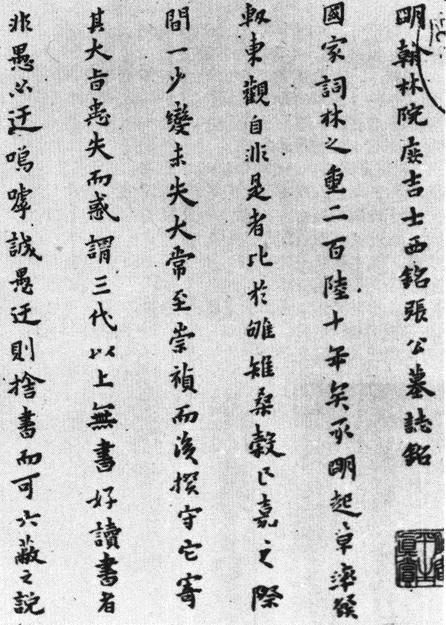 明翰林院庶吉士西銘張公墓誌銘
國家詞林之重二百陸十年矣承明起草率繇
東觀自非是者比於雊雉桑穀正嘉之際
間一少變未失大常至崇禎而後揆守它寄
其大旨患失而惑謂三代以上無書好讀書者
非愚必迂嗚嘑誠愚迂則捨書而可六蔽之說
平生真賞